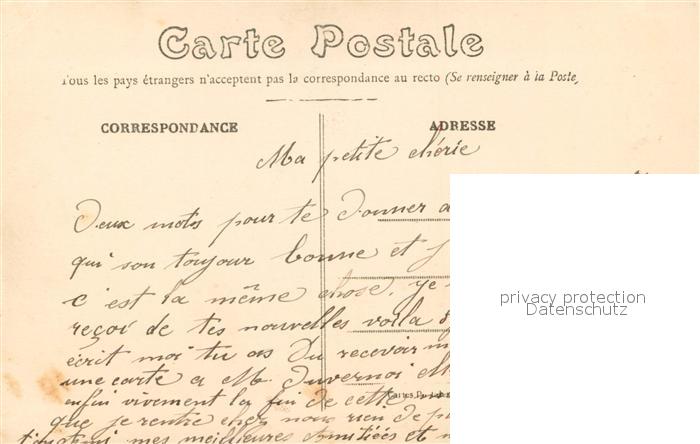 Carte Postale
Tous les pays étrangers n'acceptent pas la correspondance au recto (Se renseigner à la Poste)
CORRESPONDANCE
ADRESSE
Ma petite chérie
Deux mots pour te donner d
qui son toujour bonne et j
c'est la même chose. je
reçoi de tes nouvelles voila
écrit moi tu as Du recevoir
une carte a M. Duvernoi
enfin vivement la fin de cette
que je rentre chez nous rien de
mes meilleures Amitiées et
privacy protection
Datenschutz